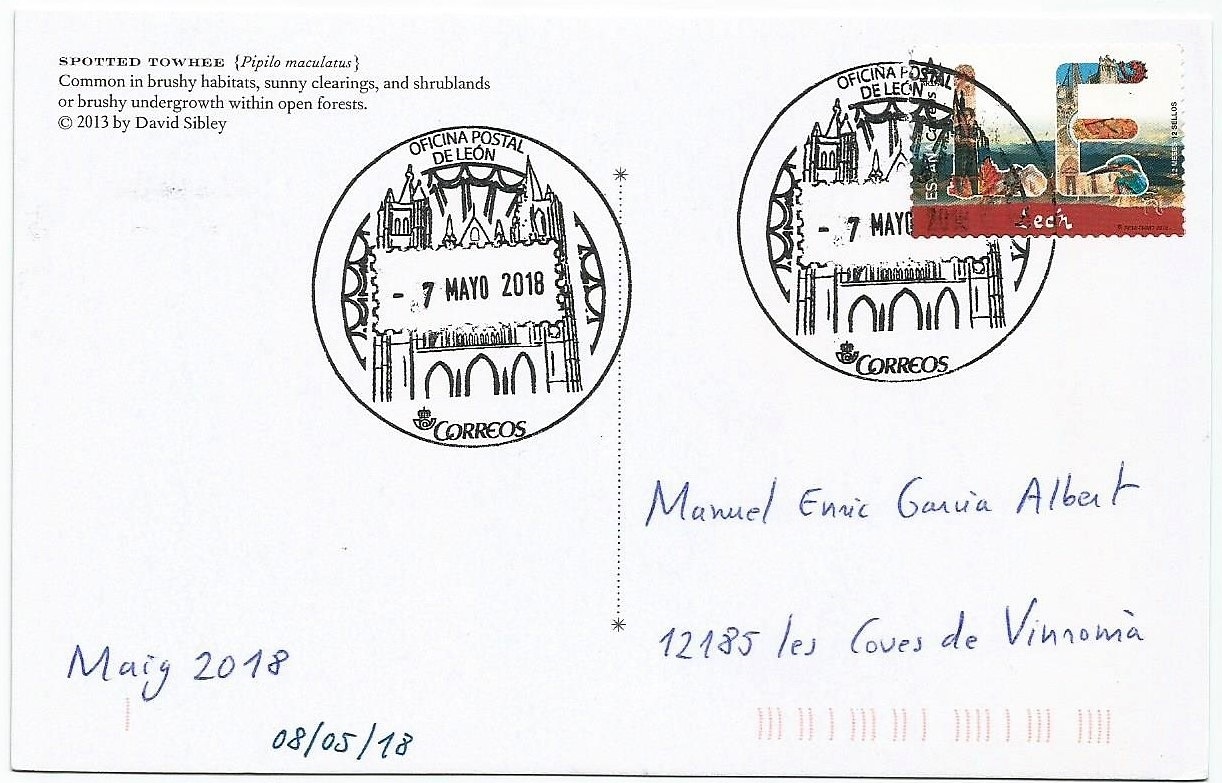 SPOTTED TOWHEE {Pipilo maculatus}
Common in brushy habitats, sunny clearings, and shrublands
or brushy undergrowth within open forests.
© 2013 by David Sibley
OFICINA POSTAL
DE LEÓN
- 7 MAYO 2018
CORREOS
OFICINA POSTAL
DE LEÓN
- 7 MAYO 2018
CORREOS
LE
12 MESES 12 SELLOS
León
Manuel Enric Garcia Albert
12185 les Coves de Vinromà
Maig 2018
08/05/18